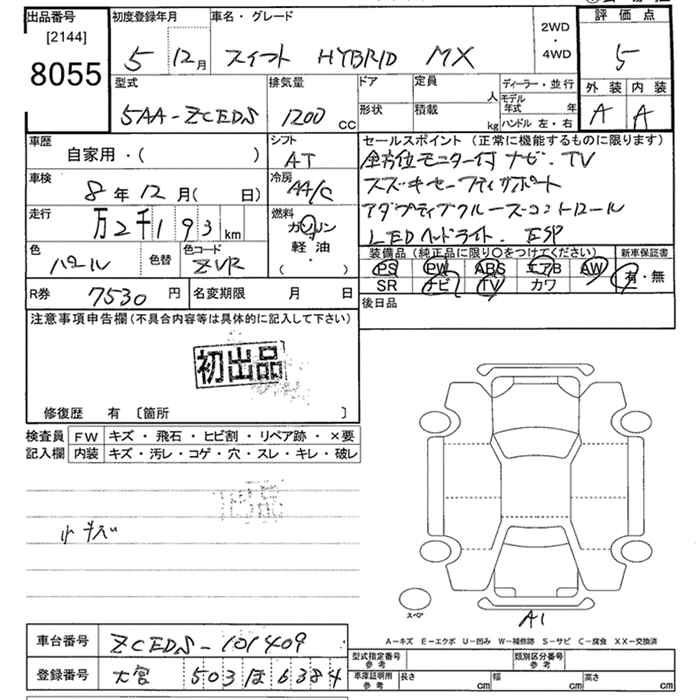 出品番号 初度登録年月 車名・グレード 2WD・4WD 評価点
[2144]
8055
5 12月 スイフト HYBRID MX 5
型式 排気量 ドア 定員 人 ディーラー・並行 外装 内装
5AA-ZCEDS 1200 cc 形状 積載 kg モデル年式 年 ハンドル 左・右 A A
車歴 シフト セールスポイント(正常に機能するものに限ります)
自家用・( ) AT 全方位モニター付ナビ・TV
車検 冷房 スズキセーフティサポート
8年12月( 日) AA/C アダプティブクルーズコントロール
走行 燃料 LEDヘッドライト. ESP
万2千193km ガソリン
軽油
( ・ )
色 色替 色コード
パール ZVR
装備品(純正品に限り○をつけてください) 新車保証書
PS PW ABS エアB AW 有・無
SR ナビ TV カワ
R券 7530円 名変期限 月 日 後日品
注意事項申告欄(不具合内容等は具体的に記入して下さい)
初出品
修復歴 有 〔箇所 〕
検査員 FW キズ・飛石・ヒビ割・リペア跡・×要
記入欄 内装 キズ・汚レ・コゲ・穴・スレ・キレ・破レ
小キズ
スペア
A1
A-キズ E-エクボ U-凹み W-補修跡 S-サビ C-腐食 XX-交換済
車台番号 ZCEDS-101409
型式指定番号 参考 類別区分番号 参考
登録番号 大宮 503 ほ 6384
車庫証明用 参考 長さ cm 幅 cm 高さ cm